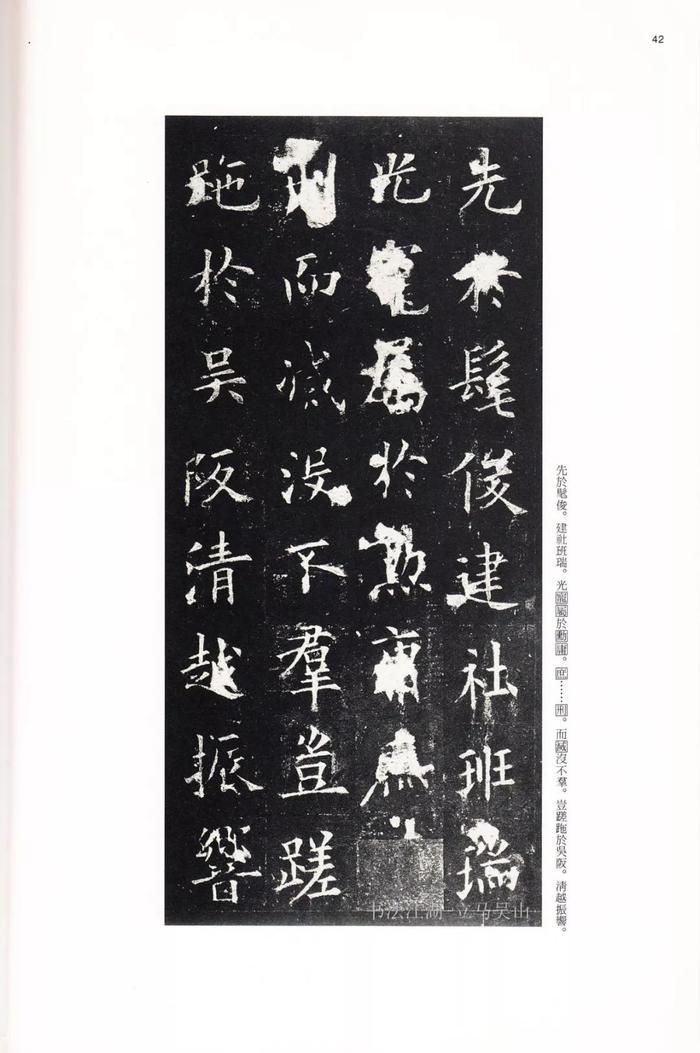 42
先於髦俊建社班瑞
光寵於勲庸庶
刑而滅沒不羣豈蹉
跎於吴阪清越振響
先於髦俊。建社班瑞。光寵於勳庸。庶……刑。而滅沒不羣。豈蹉跎於吳阪。清越振響。
书法江湖-立马吴山